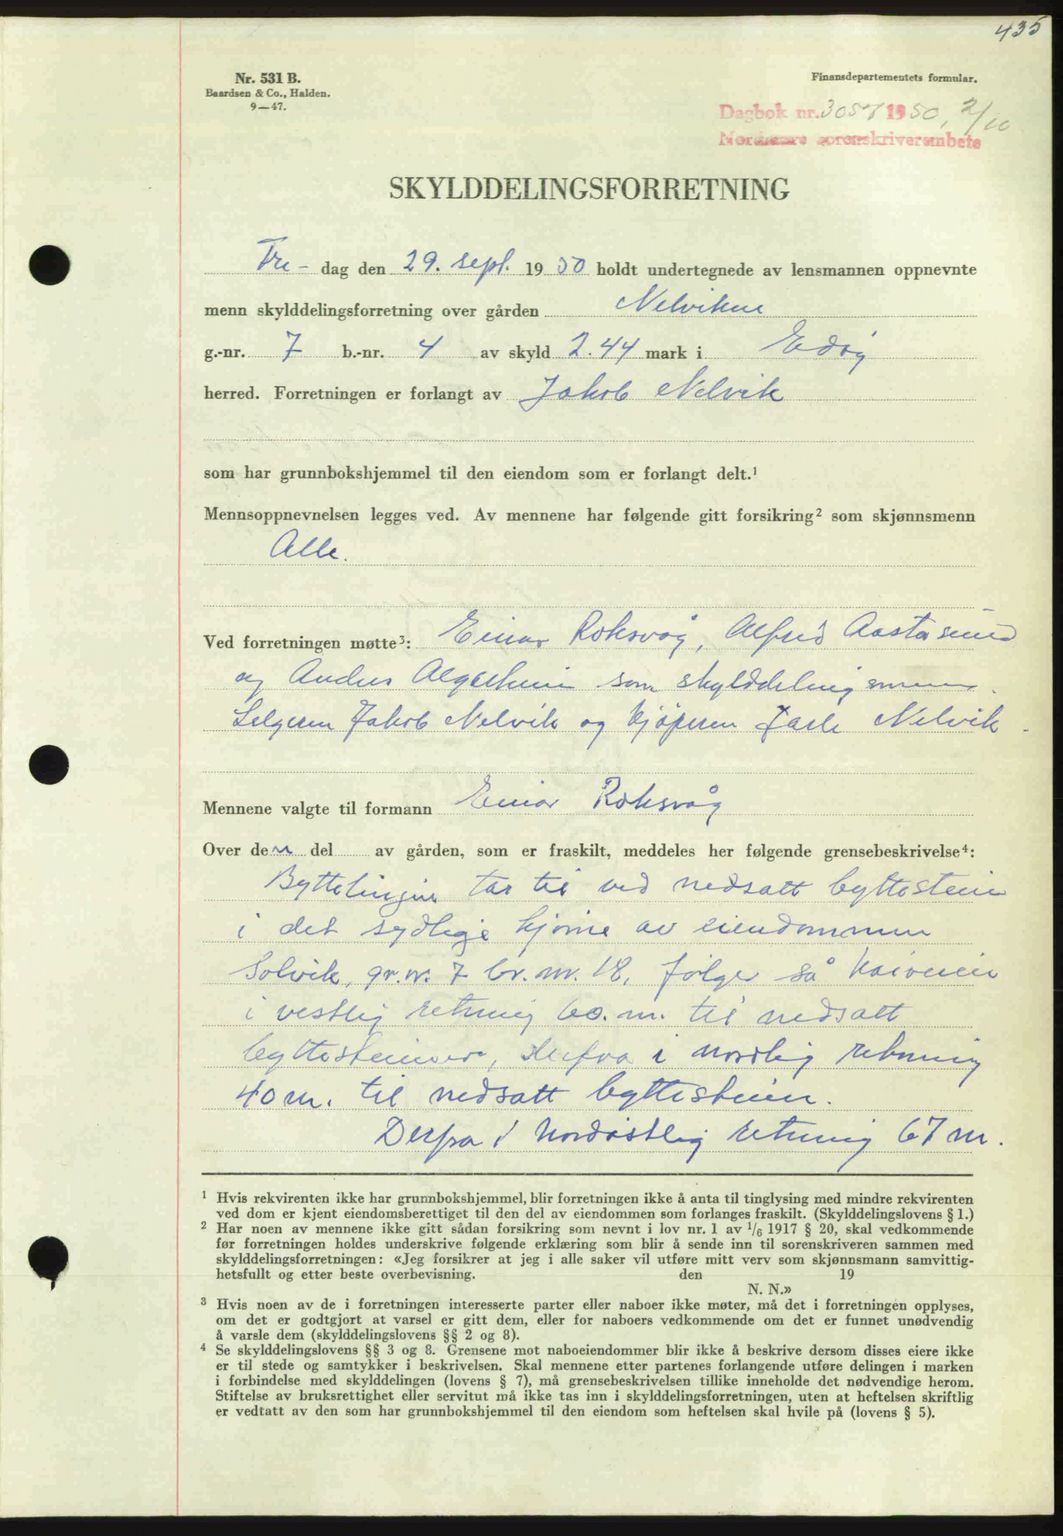 435
Nr. 531 B.
Baardsen & Co., Halden.
9—47.
Finansdepartementets formular.
Dagbok nr. 3057 1950, 2/10
Nordmøre sorenskriverembete
SKYLDDELINGSFORRETNING
Fre- dag den 29. sept. 1950 holdt undertegnede av lensmannen oppnevnte
menn skylddelingsforretning over gården Nelvikne
g.-nr. 7 b.-nr. 4 av skyld 2.44 mark i Edøy
herred. Forretningen er forlangt av Jakob Nelvik
som har grunnbokshjemmel til den eiendom som er forlangt delt.¹
Mennsoppnevnelsen legges ved. Av mennene har følgende gitt forsikring² som skjønnsmenn
Alle.
Ved forretningen møtte³: Einar Roksvåg, Alfred Aastasund
og Anders som skylddelingsmenn.
Selgeren Jakob Nelvik og kjøperen Jarle Nelvik.
Mennene valgte til formann Einar Roksvåg
Over den del av gården, som er fraskilt, meddeles her følgende grensebeskrivelse⁴:
Byttelinjen tar til ved nedsatt byttestein
i det sydlige hjørne av eiendommen
Solvik, gr.nr. 7 br.nr. 18, følger så kaiveien
i vestlig retning 60. m. til nedsatt
byttesteiner, derfra i nordlig retning
40 m. til nedsatt byttestein.
Derfra i Nordøstlig retning 67 m.
¹ Hvis rekvirenten ikke har grunnbokshjemmel, blir forretningen ikke å anta til tinglysing med mindre rekvirenten
ved dom er kjent eiendomsberettiget til den del av eiendommen som forlanges fraskilt. (Skylddelingslovens § 1.)
² Har noen av mennene ikke gitt sådan forsikring som nevnt i lov nr. 1 av 1/6 1917 § 20, skal vedkommende
før forretningen holdes underskrive følgende erklæring som blir å sende inn til sorenskriveren sammen med
skylddelingsforretningen: «Jeg forsikrer at jeg i alle saker vil utføre mitt verv som skjønnsmann samvittig-
hetsfullt og etter beste overbevisning. den 19
N. N.»
³ Hvis noen av de i forretningen interesserte parter eller naboer ikke møter, må det i forretningen opplyses,
om det er godtgjort at varsel er gitt dem, eller for naboers vedkommende om det er funnet unødvendig
å varsle dem (skylddelingslovens §§ 2 og 8).
⁴ Se skylddelingslovens §§ 3 og 8. Grensene mot naboeiendommer blir ikke å beskrive dersom disses eiere ikke
er til stede og samtykker i beskrivelsen. Skal mennene etter partenes forlangende utføre delingen i marken
i forbindelse med skylddelingen (lovens § 7), må grensebeskrivelsen tillike inneholde det nødvendige herom.
Stiftelse av bruksrettighet eller servitut må ikke tas inn i skylddelingsforretningen, uten at heftelsen skriftlig
er vedtatt av den som har grunnbokshjemmel til den eiendom som heftelsen skal hvile på (lovens § 5).